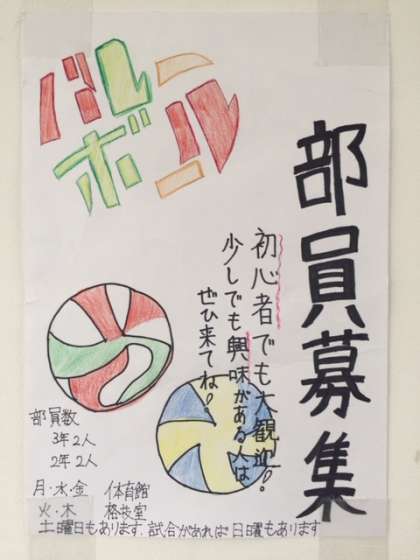 バレー
ボール
部員募集
初心者でも大観迎!
少しでも興味がある人は
ぜひ来てね!
部員数
3年2人
2年2人
月・水・金 体育館
火・木 格技室
土曜日もあります。試合があれば日曜もあります